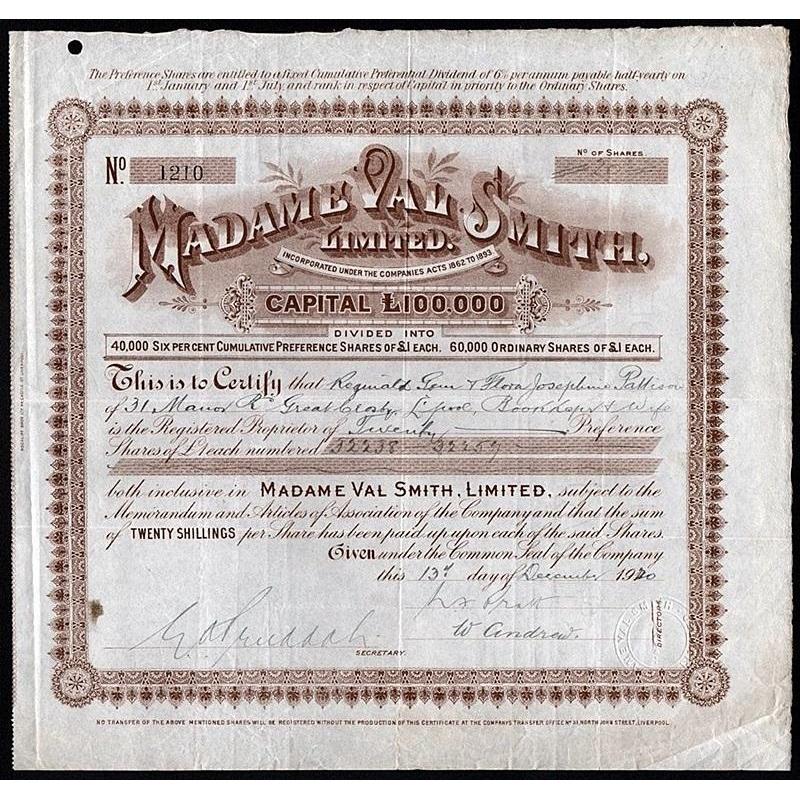 The Preference Shares are entitled to a fixed Cumulative Preferential Dividend of 6% per annum payable half-yearly on
1st January and 1st July, and rank in respect of Capital in priority to the Ordinary Shares.
No. 1210
No OF SHARES.
MADAME VAL SMITH.
LIMITED.
INCORPORATED UNDER THE COMPANIES ACTS 1862 TO 1893
CAPITAL £100.000
DIVIDED INTO
40,000 SIX PER CENT CUMULATIVE PREFERENCE SHARES OF £1 EACH. 60,000 ORDINARY SHARES OF £1 EACH.
This is to Certify that Reginald & Flora Josephine Pattison
of 31 Manor Rd Great Crosby, L'pool, Bookkeeper & Wife
is the Registered Proprietor of Twenty Preference
Shares of £1 each numbered 32238 32257
both inclusive in MADAME VAL SMITH, LIMITED, subject to the
Memorandum and Articles of Association of the Company and that the sum
of TWENTY SHILLINGS per Share has been paid up upon each of the said Shares.
Given under the Common Seal of the Company
this 13th day of December 1920
W Andrew
DIRECTORS
SECRETARY.
NO TRANSFER OF THE ABOVE MENTIONED SHARES WILL BE REGISTERED WITHOUT THE PRODUCTION OF THIS CERTIFICATE AT THE COMPANYS TRANSFER OFFICE No 31, NORTH JOHN STREET, LIVERPOOL.